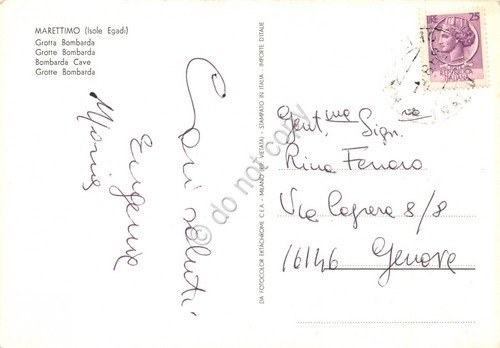 MARETTIMO (Isole Egadi)
Grotta Bombarda
Grotte Bombarda
Bombarda Cave
Grotte Bombarda
Cari saluti
Eugenia
DA FOTOCOLOR EKTACHROME C.E.A. - MILANO (RIP. VIETATA) - STAMPATO IN ITALIA - IMPORTE D'ITALIE
LIRE 25
Gent.ma Sig.ra
Rina Ferraro
Via Caprera 8/8
16146 Genova
© do not copy